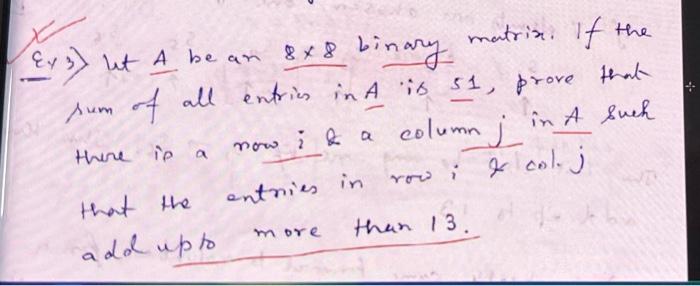 Ex 3) let A be an 8x8 binary matrix. If the
sum of all entries in A is 51, prove that
there is a row i & a column j in A such
that the entries in row i & col. j
add upto more than 13.